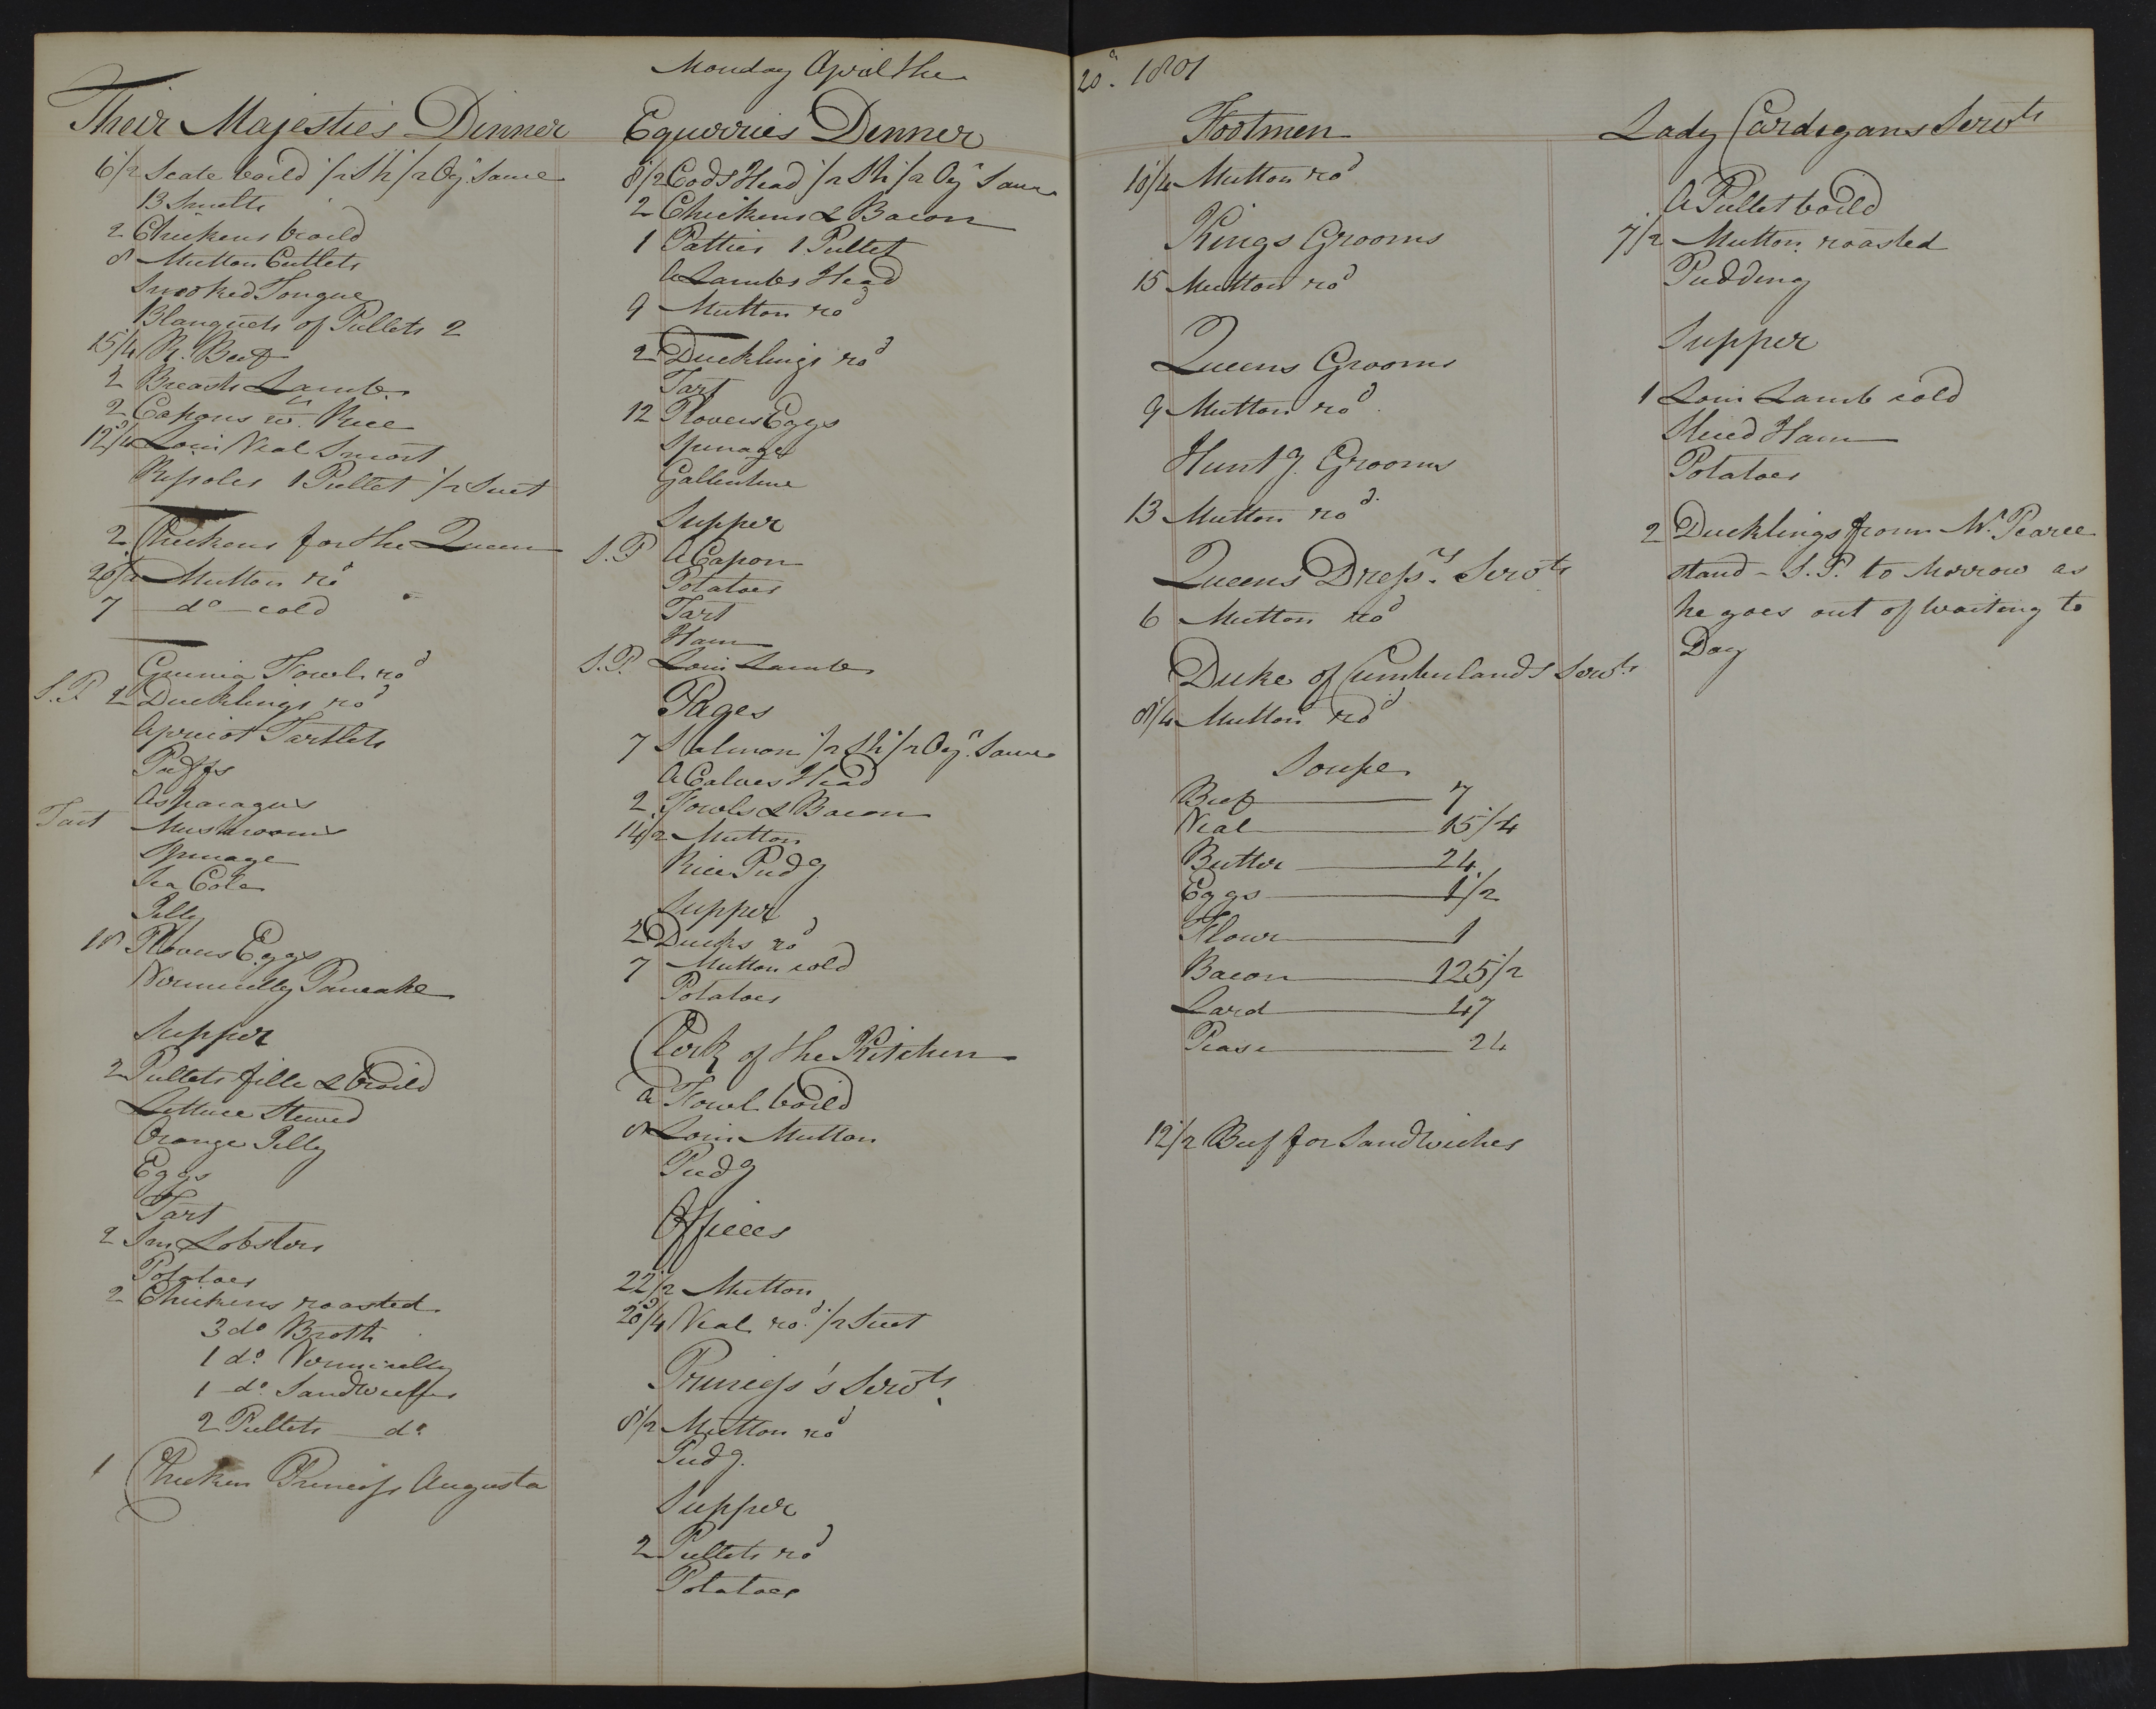 Monday April the 20th. 1801
Their Majesties Dinner
6 1/2 Scate boild 1/2 Sh 1/2 Oyr Sauce
13 Smelts
2 Chickens broild
8 Mutton Cutlets
Smoked Tongue
Blanquets of Pullets 2
15 1/4 Rt. Beef
2 Breasts Lamb
2 Capons wth. Rice
Loin Veal Smort
Rissoles 1 Pullet 1/2 Suet
2 Chickens for the Queen
Mutton rod
7 do cold
Guinia Fowl rod
S.P. 2 Ducklings rod
Apricot Tartlets
Puffs
Asparagus
Tart Mushrooms
Spinage
Sea Cole
Jilly
18 Plovers Eggs
Vermicelly Pancake
Supper
2 Pullets fille & broild
Lettuce Stewed
Orange Jilly
Eggs
Tart
2 Sm Lobsters
Potatoes
2 Chickens roasted
3 do Broth
1 do. Vermicelly
1 do. Sandwiches
2 Pullets do
1 Chicken Princess Augusta
Equerries Dinner
8 1/2 Cods Head 1/2 Sh 1/2 Oyr Sauce
2 Chickens & Bacon
1 Patties 1 Pullet
A Lambs Head
9 Mutton rod
2 Ducklings rod
Tart
12 Plovers Eggs
Spinage
Gallentine
Supper
S.P. A Capon
Potatoes
Tart
Ham
S.P. Loin Lamb
Pages
7 Salmon 1/2 Sh 1/2 Oyr. Sauce
A Calves Head
2 Fowls & Bacon
14 1/2 Mutton
Rice Pudg
Supper
2 Ducks rod
7 Mutton cold
Potatoes
Clerk of the Kitchen
a Fowl boild
8 Loin Mutton
Pudg
Offices
22 1/2 Mutton
20 3/4 Veal rod. 1/2 Suet
Princess's Servts
8 1/2 Mutton rod
Pudg.
Supper
2 Pullets rod
Potatoes
Footmen
10 1/4 Mutton rod
Kings Grooms
15 Mutton rod
Queens Grooms
9 Mutton rod.
Huntg. Grooms
13 Mutton rod.
Queens Dressrs. Servts
6 Mutton rod
Duke of Cumberlands Servts
8 1/4 Mutton rod
Soupe
Beef 7
Veal 15 1/4
Butter 24
Eggs 1 1/2
Flour 1
Bacon 125 1/2
Lard 47
Pease 24
12 1/2 Beef for Sandwiches
Lady Cardigans Servts
A Pullet boild
7 1/2 Mutton roasted
Pudding
Supper
1 Loin Lamb cold
Sliced Ham
Potatoes
2 Ducklings from Mr. Pearce
stand - S.P. to Morrow as
he goes out of Waiting to
Day